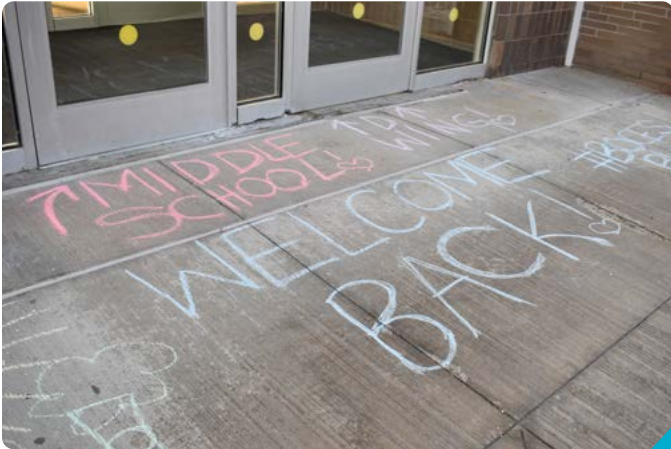 ↑ MIDDLE
SCHOOL!
WING!
WELCOME
BACK!
#BOCES